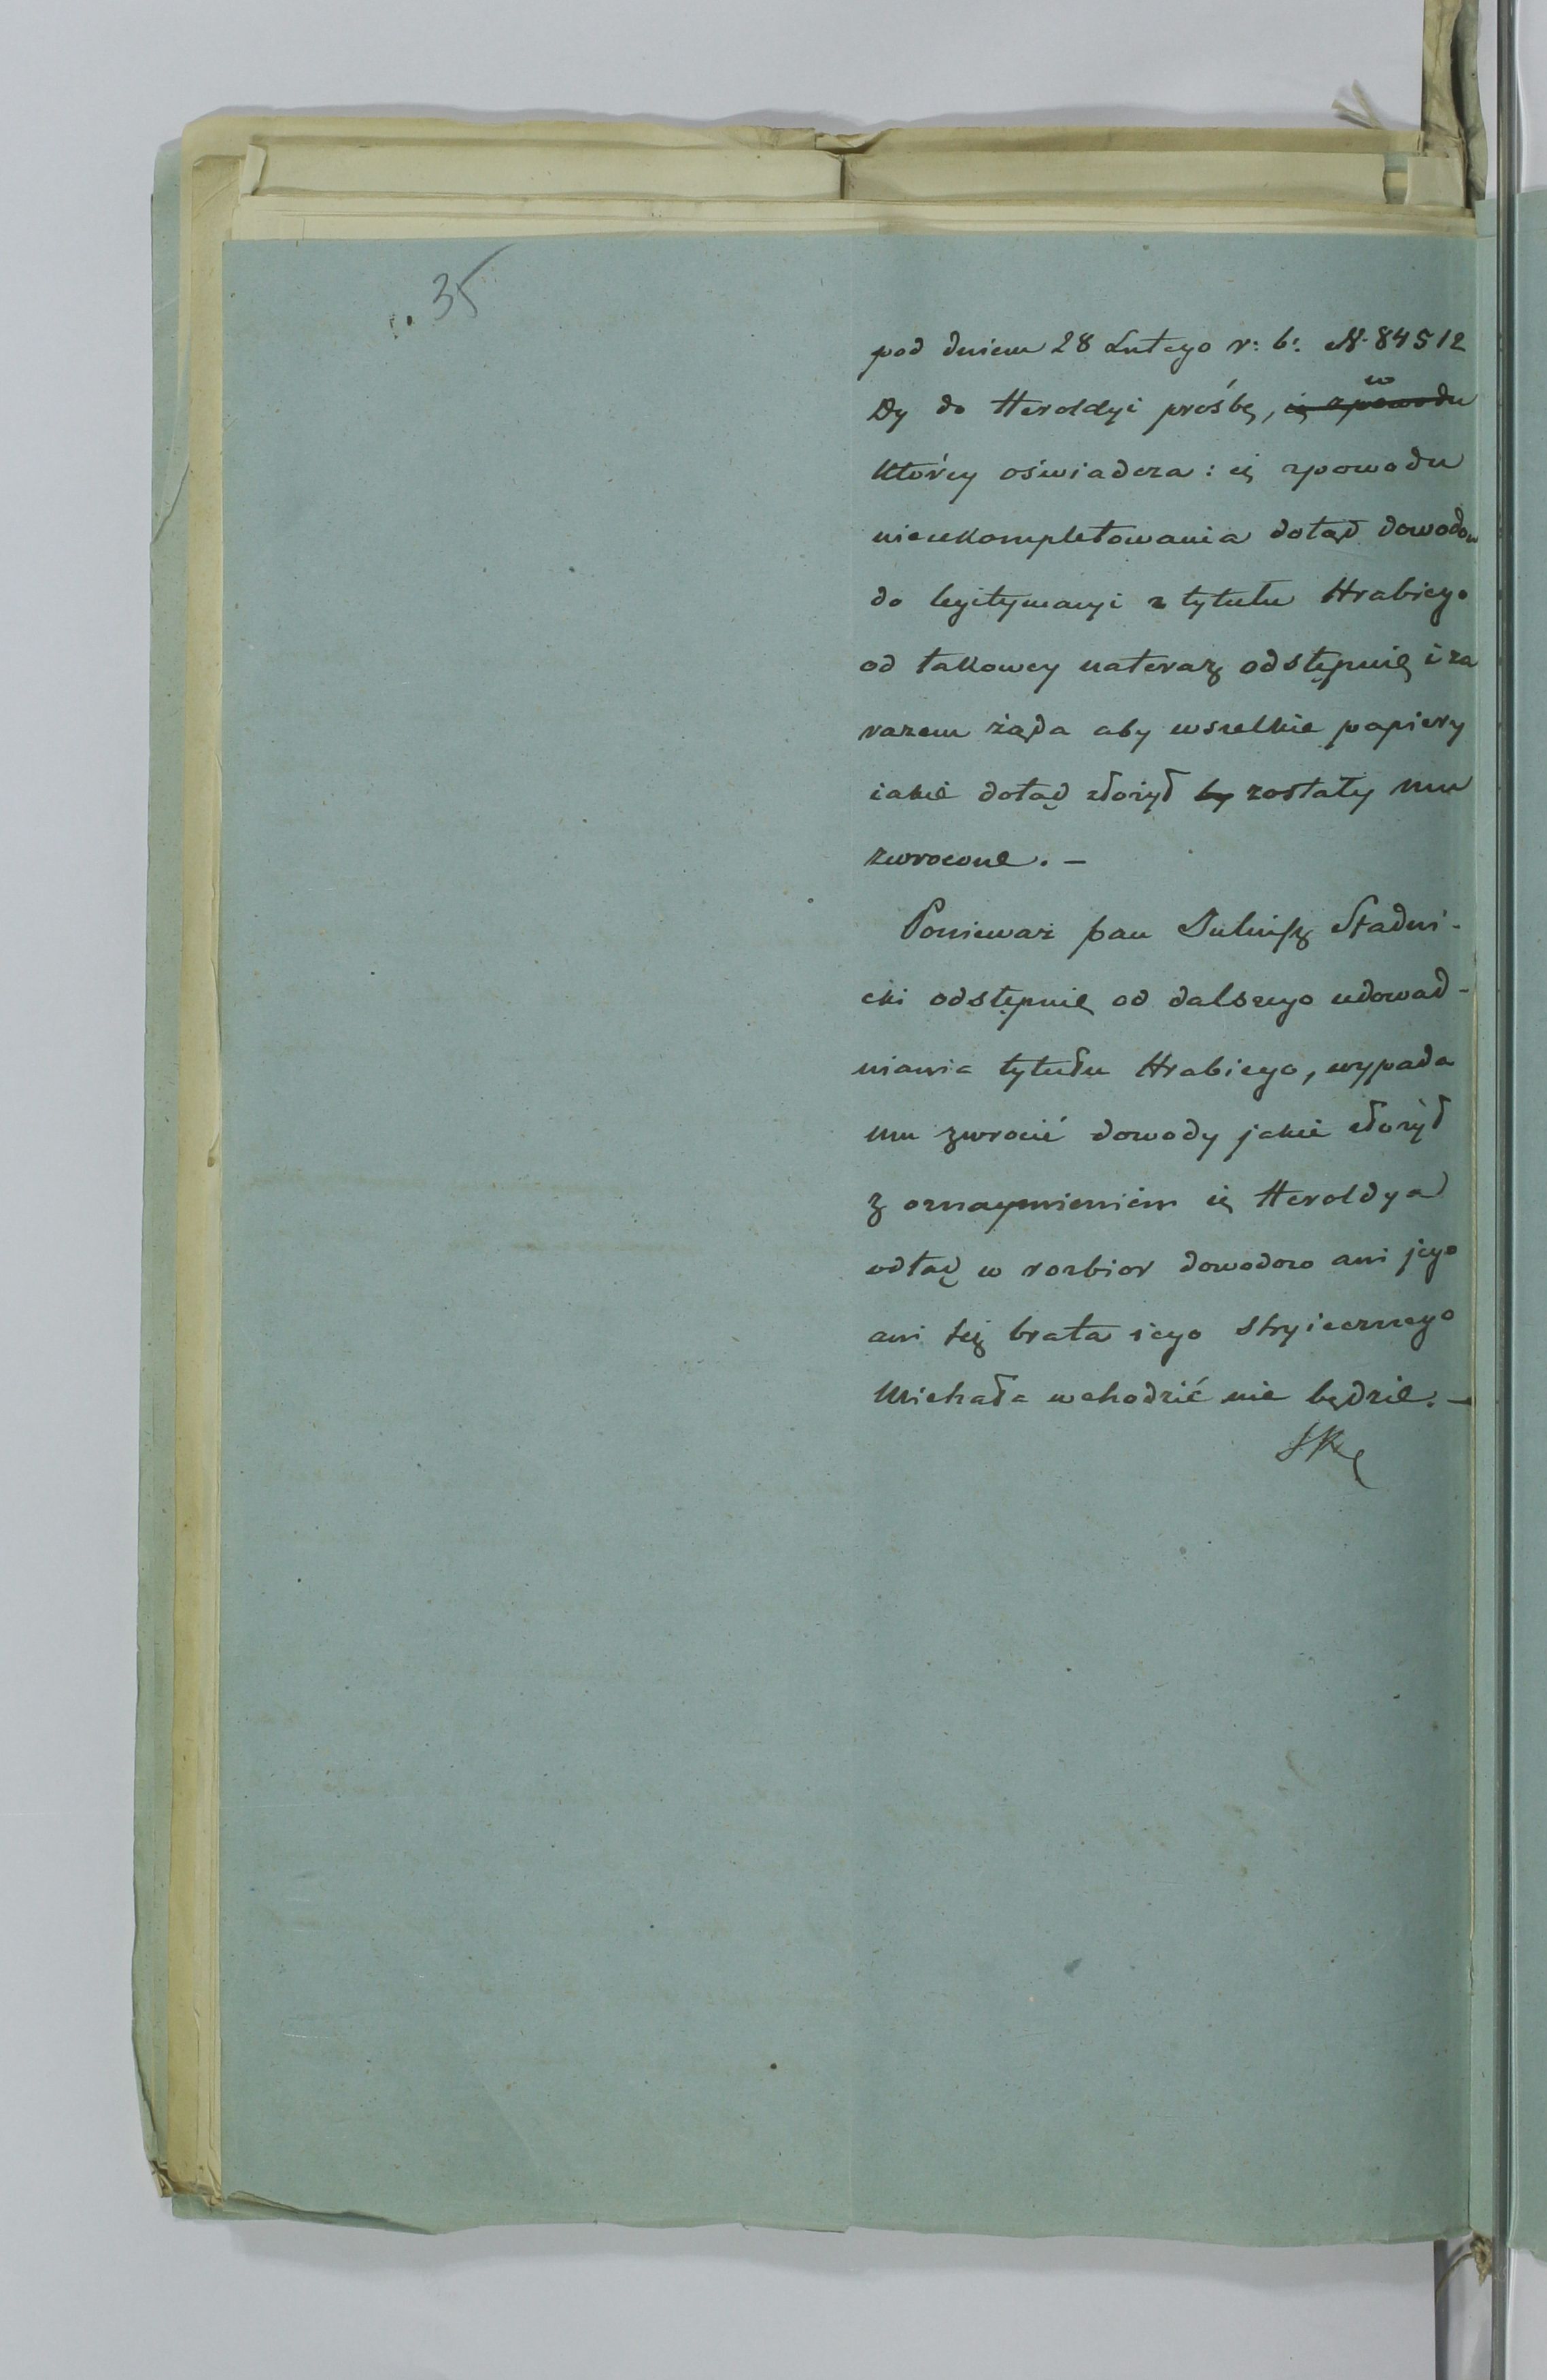 35
pod dniem 28 Lutego r: b: N. 84512
Dy do Heroldyi prośbę, iż zpowodu w
którey oświadcza: iż zpowodu
nieukompletowania dotąd dowodow
do legitymacyi z tytułu Hrabiego
od takowey nateraz odstępuię i za
razem żąda aby wszelkie papiery
iakie dotąd złożył by zostały mu
zwrocone. –
Ponieważ pan Juliusz Stadni-
cki odstępuię od dalszego udowad-
niania tytułu Hrabiego, wypada
mu zwrocić dowody jakie złożył
z oznaymieniem iż Heroldya
odtąd w rozbior dowodow ani jego
ani też brata iego stryiecznego
Michała wchodzić nie będzie. –